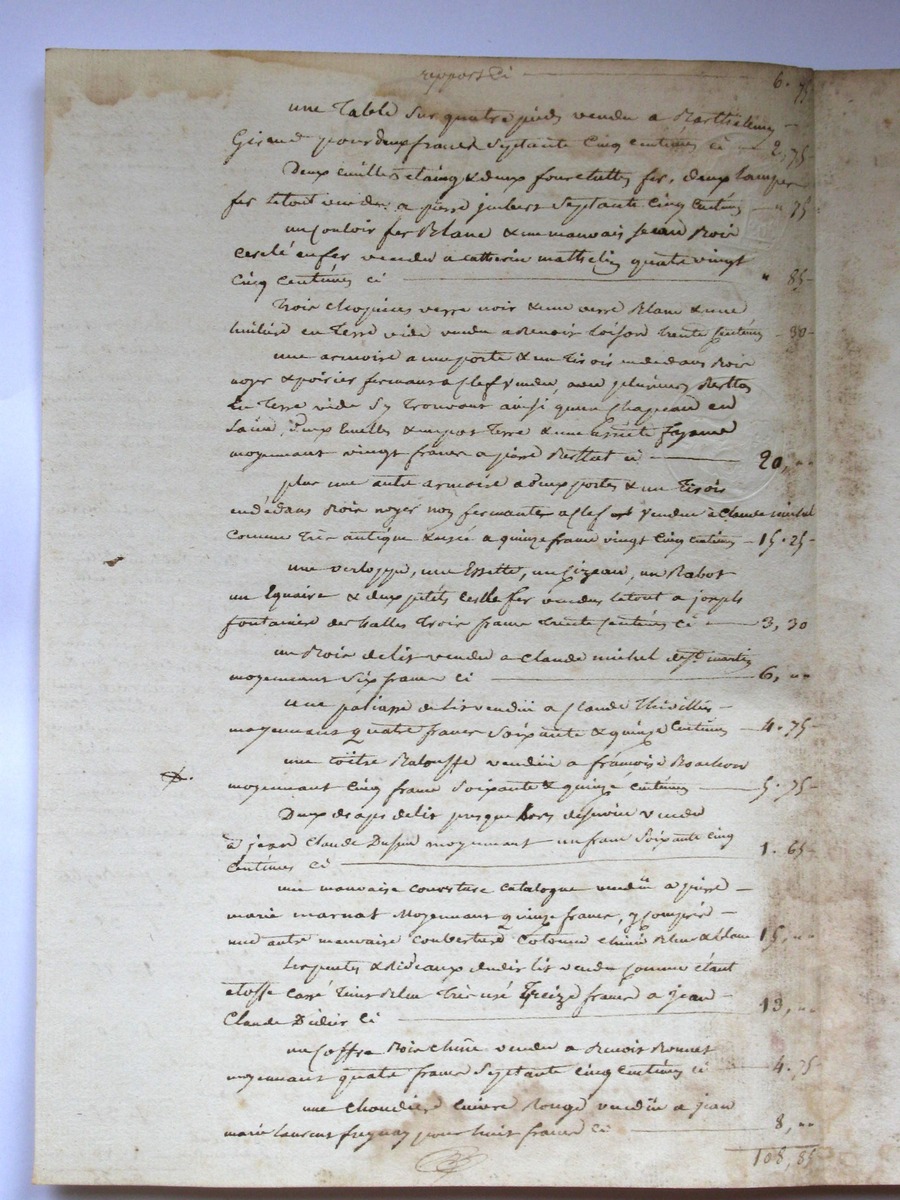 report Ci 6. 75
une Table Sur quatre pieds vendu a Barthelemy
Giraud pour deux francs Septante Cinq Centimes Ci 2, 75
Deux cuillers etaing & deux fourchettes fer, deux lampes
fer letout vendu a pierre jmbert Septante Cinq Centimes " 75
un Couloir fer Blanc & un mauvais Seau Bois
cerclé en fer vendu a Catherine mathelin quatre vingt
Cinq Centimes Ci " 85
Trois Chopines verre noir & une verre Blanc & une
huilier en Terre vide vendu a Benoit Loison Trente Centimes 30
une armoire a une porte & un Tiroir endedans Bois
noyer & poirier fermans a Clef vendu avec plusieurs
En Terre vide Sy Trouvant ainsi qu'un Chapeau en
Laine, & un pot Terre & une assiete fayance
moyennant vingt francs a pierre Berthet Ci 20, "
plus une autre armoire a Deux portes & un Tiroir
endédans Bois noyer non fermante a Clef vendu à Claude michel
Comme Très antique & usée a quinze franc vingt Cinq Centimes 15. 25
une verloppe, une Essette, un Cizeau, un Rabot
un Equaire & deux petits fer vendus letout a joseph
fontaine des halles Trois franc Trente Centimes Ci 3, 30
un Bois delit vendu a Claude michel de St. martin
moyennant Six francs Ci 6, "
une paliasse delit vendu a Claude Thivillier
moyennant quatre francs Soixante & quinze Centimes 4. 75
une Coëtre Balouffe vendu a françoise
moyennant Cinq franc Soixante & quinze Centimes 5. 75
Deux draps delit presque hors deservice vendu
à jean Claude Dupin moyennant un franc Soixante Cinq
Centimes Ci 1. 65
une mauvaise Couverture Catalogue vendu a pierre
marie marnat moyennant quinze francs, y Compris
une autre mauvaise Couverture Cotonne Chiné Bleu & blanc 15, "
Les pentes & Rideaux dudit lit vendu Comme étant
étoffe Carré Teint Bleu Très usé Treize francs a jean
Claude Didier Ci 13, "
un Coffre Bois Chêne vendu a Benoit Bonnet
moyennant quatre francs Septante Cinq Centimes Ci 4. 75
une Chaudiere Cuivre Rouge vendu a jean
marie Laurent pour huit francs Ci 8, "
108, 85